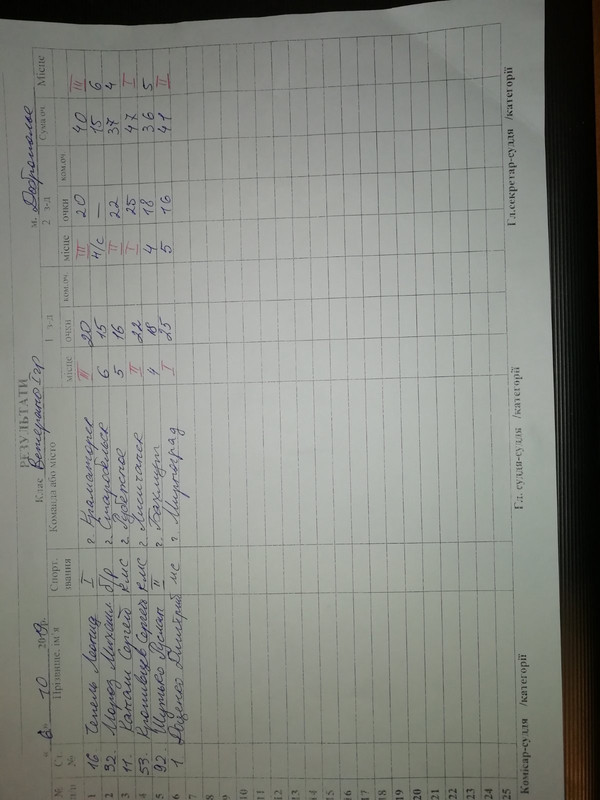 РЕЗУЛЬТАТИ
« 6 » 10 2019р. Клас Ветерано Ігр м. Доброполье
№ п/п Ст. № Прізвище, ім'я Спорт. звання Команда або місто 1 з-д 2 з-д Сума оч. Місце
місце очки ком.оч. місце очки ком.оч.
1 16 Чепель Леонид I г Краматорск III 20 III 20 40 III
2 32. Мороз Михаил б/р г. Старобельск 6 15 4/с — 15 6
3 11. Сергей кмс г Рубежное 5 16 II 22 37 4
4 53. Сергей кмс г Лисичанск II 22 I 25 47 I
5 92. Шутько Руслан II г. Бахмут 4 18 4 18 36 5
6 1 Доценко Дмитрий мс г Мирноград I 25 5 16 41 II
7
8
9
10
11
12
13
14
15
16
17
18
19
20
21
22
23
24
25
Комісар-суддя /категорії Гл. суддя-суддя /категорії Гл.секретар-суддя /категорії